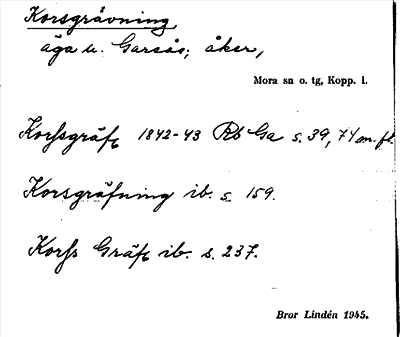 Korsgrävning
äga u. Garsås; åker,
Mora sn o. tg, Kopp. l.
Korssgräft 1842-43 Rb Ga s. 39, 74 m. fl.
Korsgräfning ib. s. 159.
Korss Gräft ib. s. 237.
Bror Lindén 1945.